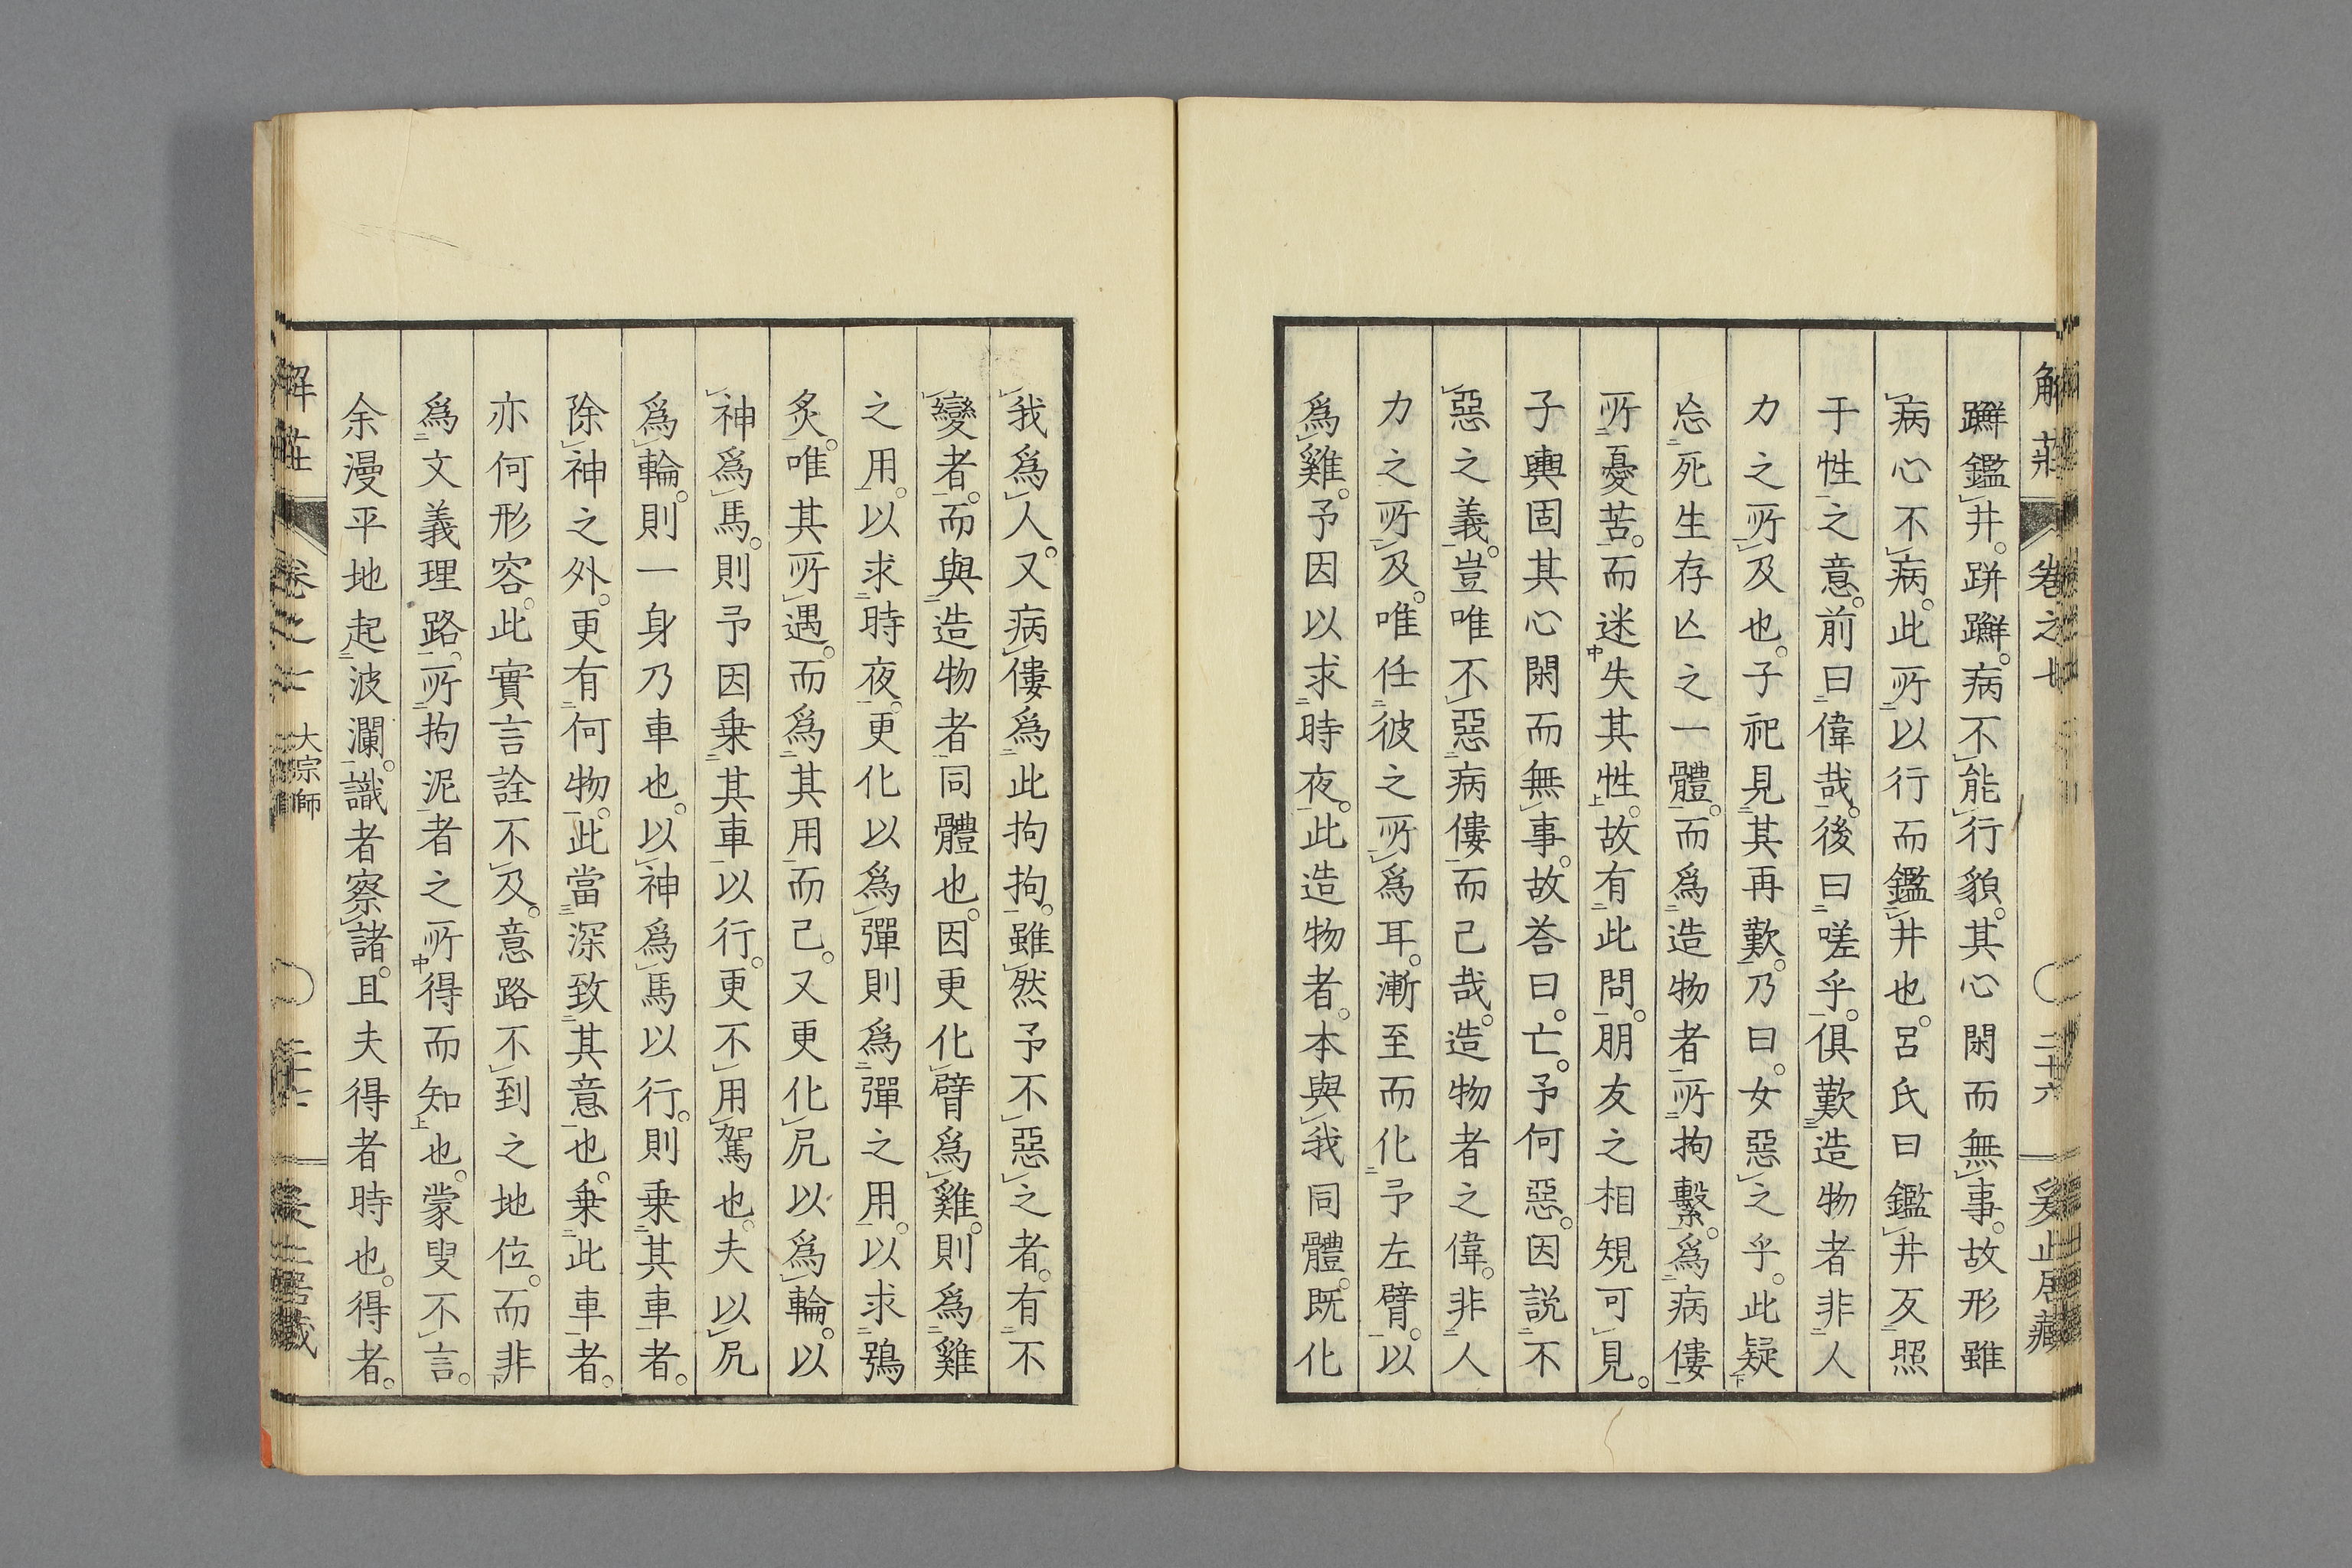 解莊 卷之七 二十六 爰止居藏
𨇤鑑井。跰𨇤。病不能行貌。其心閑而無事。故形雖
病心不病。此所以行而鑑井也。呂氏曰鑑井反照
于性之意。前曰偉哉。後曰嗟乎。俱歎造物者非人
力之所及也。子祀見其再歎。乃曰。女惡之乎。此疑
忘死生存亡之一體。而爲造物者所拘繫。爲病僂
所憂苦。而迷失其性。故有此問。朋友之相規可見。
子輿固其心閑而無事。故荅曰。亡。予何惡。因説不
惡之義。豈唯不惡病僂而已哉。造物者之偉。非人
力之所及。唯任彼之所爲耳。漸至而化予左臂。以
爲雞。予因以求時夜。此造物者。本與我同體。既化
我爲人。又病僂爲此拘拘。雖然予不惡之者。有不
變者。而與造物者同體也。因更化臂爲雞。則爲雞
之用。以求時夜。更化以爲彈則爲彈之用。以求鴞
炙。唯其所遇。而爲其用而已。又更化尻以爲輪。以
神爲馬。則予因乗其車以行。更不用駕也。夫以尻
爲輪。則一身乃車也。以神爲馬以行。則乗其車者。
除神之外。更有何物。此當深致其意也。乗此車者。
亦何形容。此實言詮不及。意路不到之地位。而非
爲文義理路。所拘泥者之所得而知也。蒙叟不言。
余漫平地起波瀾。識者察諸。且夫得者時也。得者。
解莊 卷之七 大宗師